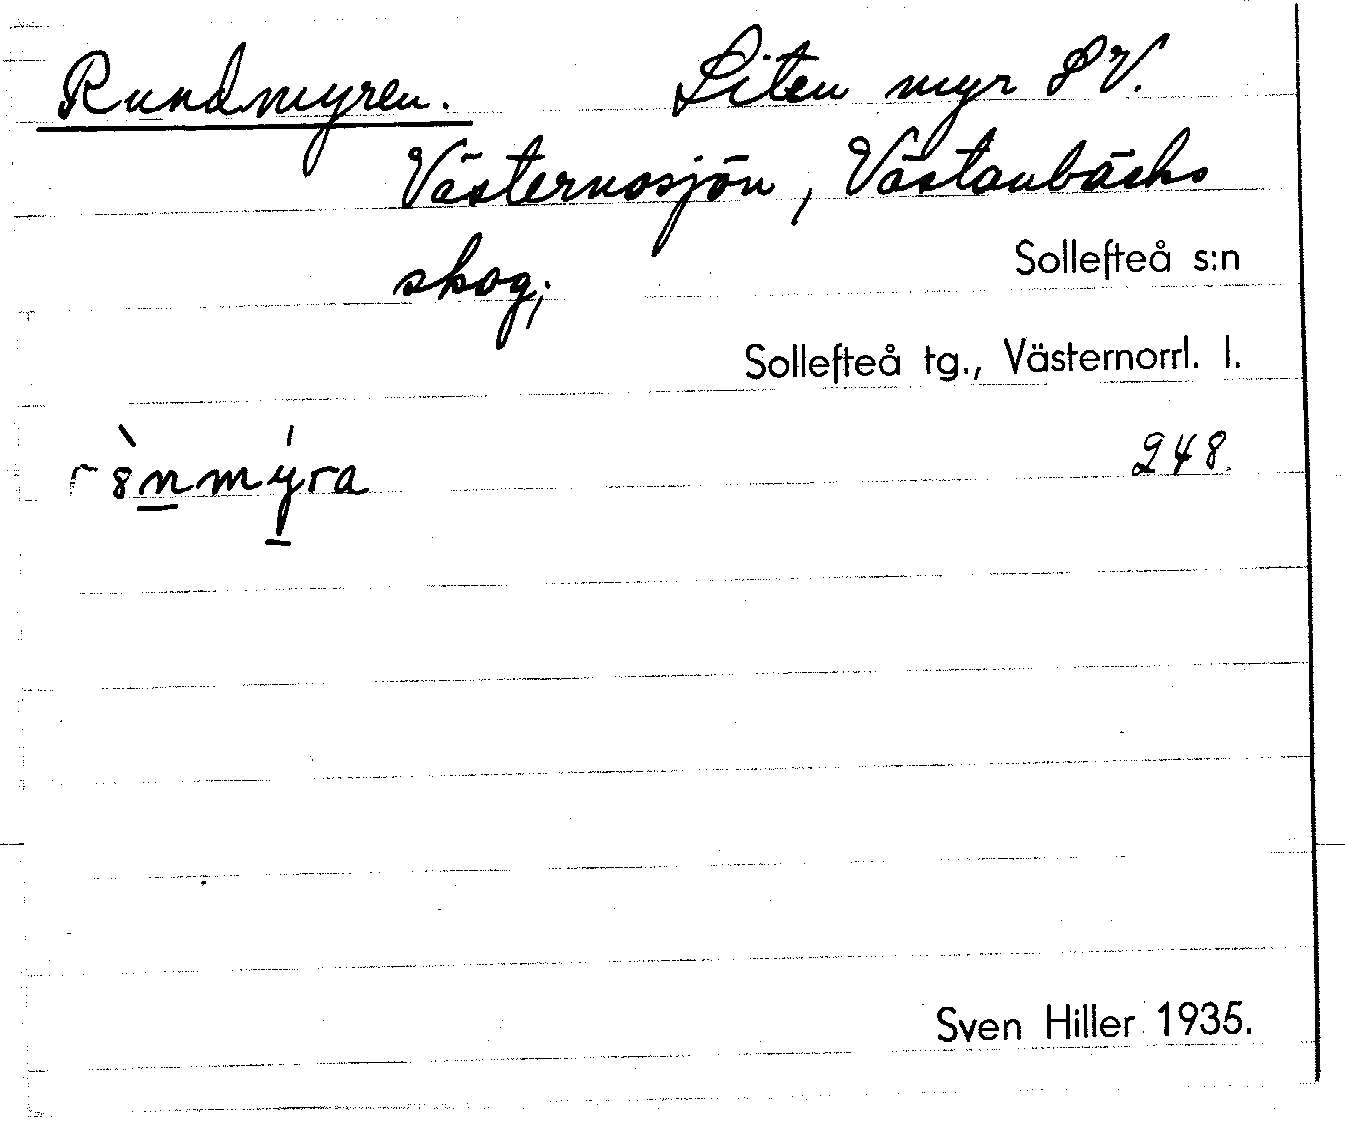 Rundmyren. Liten myr SV.
Västernosjön, Västanbäcks
skog;
Sollefteå s:n
Sollefteå tg., Västernorrl. l.
r8̀nmýra 248.
Sven Hiller 1935.